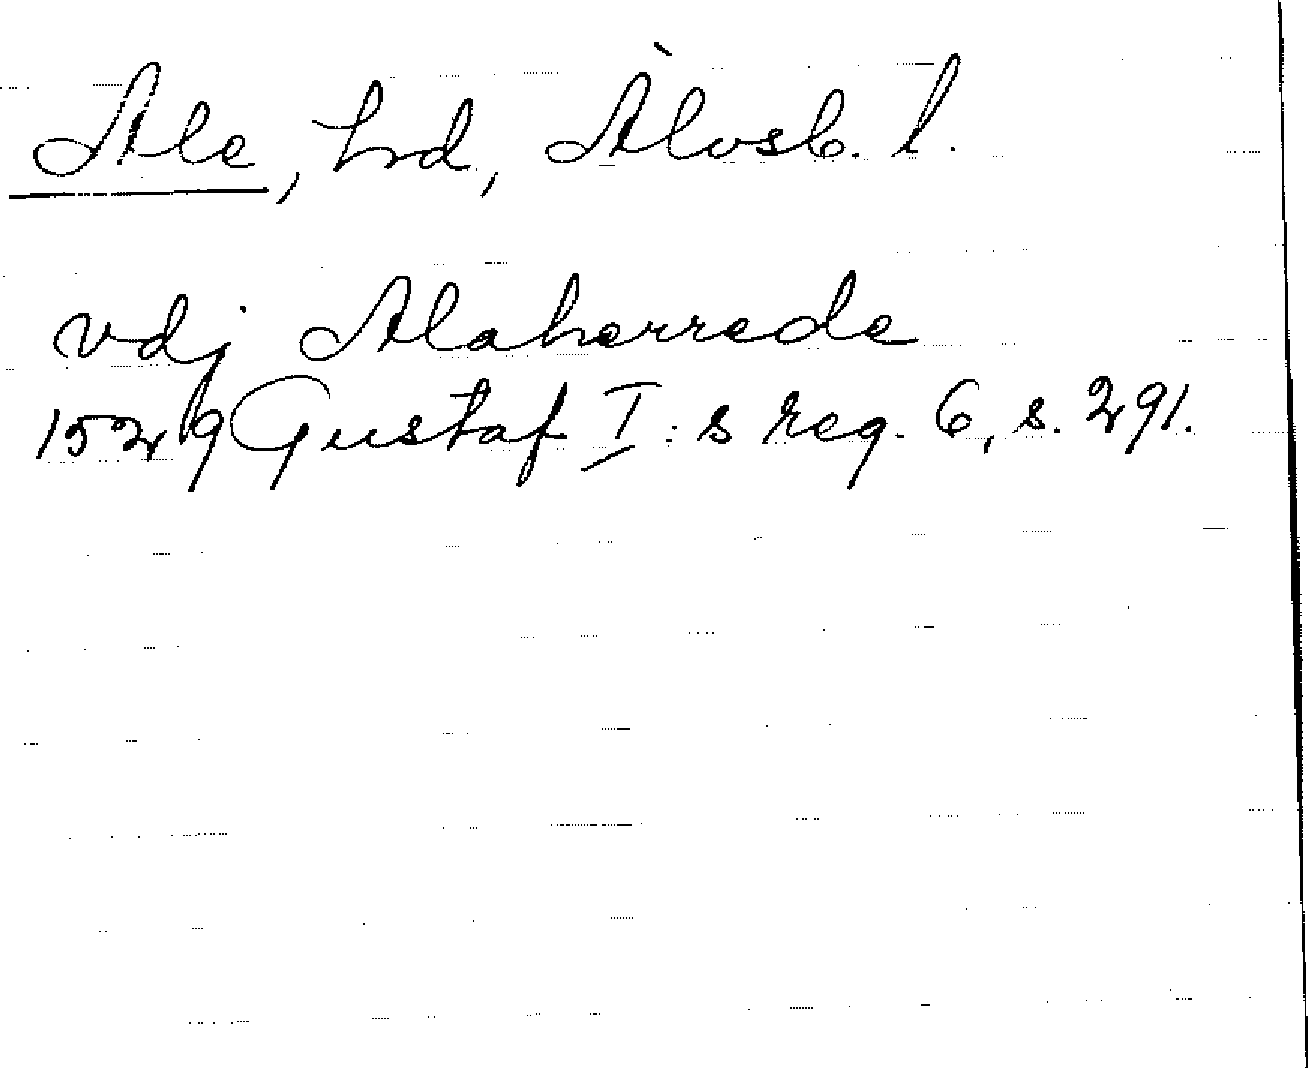 Ale, hrd, Älvsb. l.
vdj Alaherrede
1529 Gustaf I:s reg. 6, s. 291.